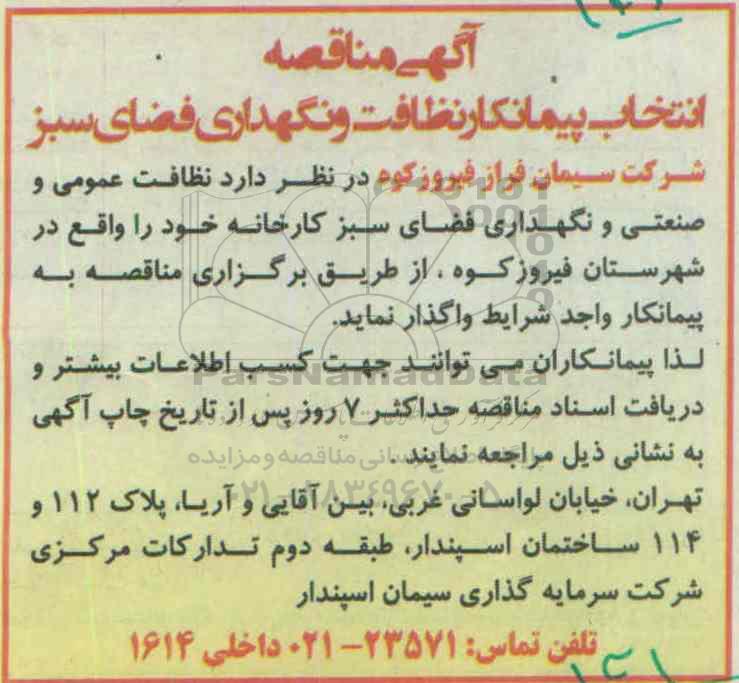 آگهی مناقصه
انتخاب پیمانکار نظافت و نگهداری فضای سبز
شرکت سیمان فراز فیروزکوه در نظر دارد نظافت عمومی و
صنعتی و نگهداری فضای سبز کارخانه خود را واقع در
شهرستان فیروزکوه ، از طریق برگزاری مناقصه به
پیمانکار واجد شرایط واگذار نماید.
لذا پیمانکاران می توانند جهت کسب اطلاعات بیشتر و
ParsNamadData
دریافت اسناد مناقصه حداکثر ۷ روز پس از تاریخ چاپ آگهی
به نشانی ذیل مراجعه نمایند .
تهران، خیابان لواسانی غربی، بین آقایی و آریا، پلاک ۱۱۲ و
۱۱۴ ساختمان اسپندار، طبقه دوم تدارکات مرکزی
شرکت سرمایه گذاری سیمان اسپندار
تلفن تماس: ۲۳۵۷۱-۰۲۱ داخلی ۱۶۱۴